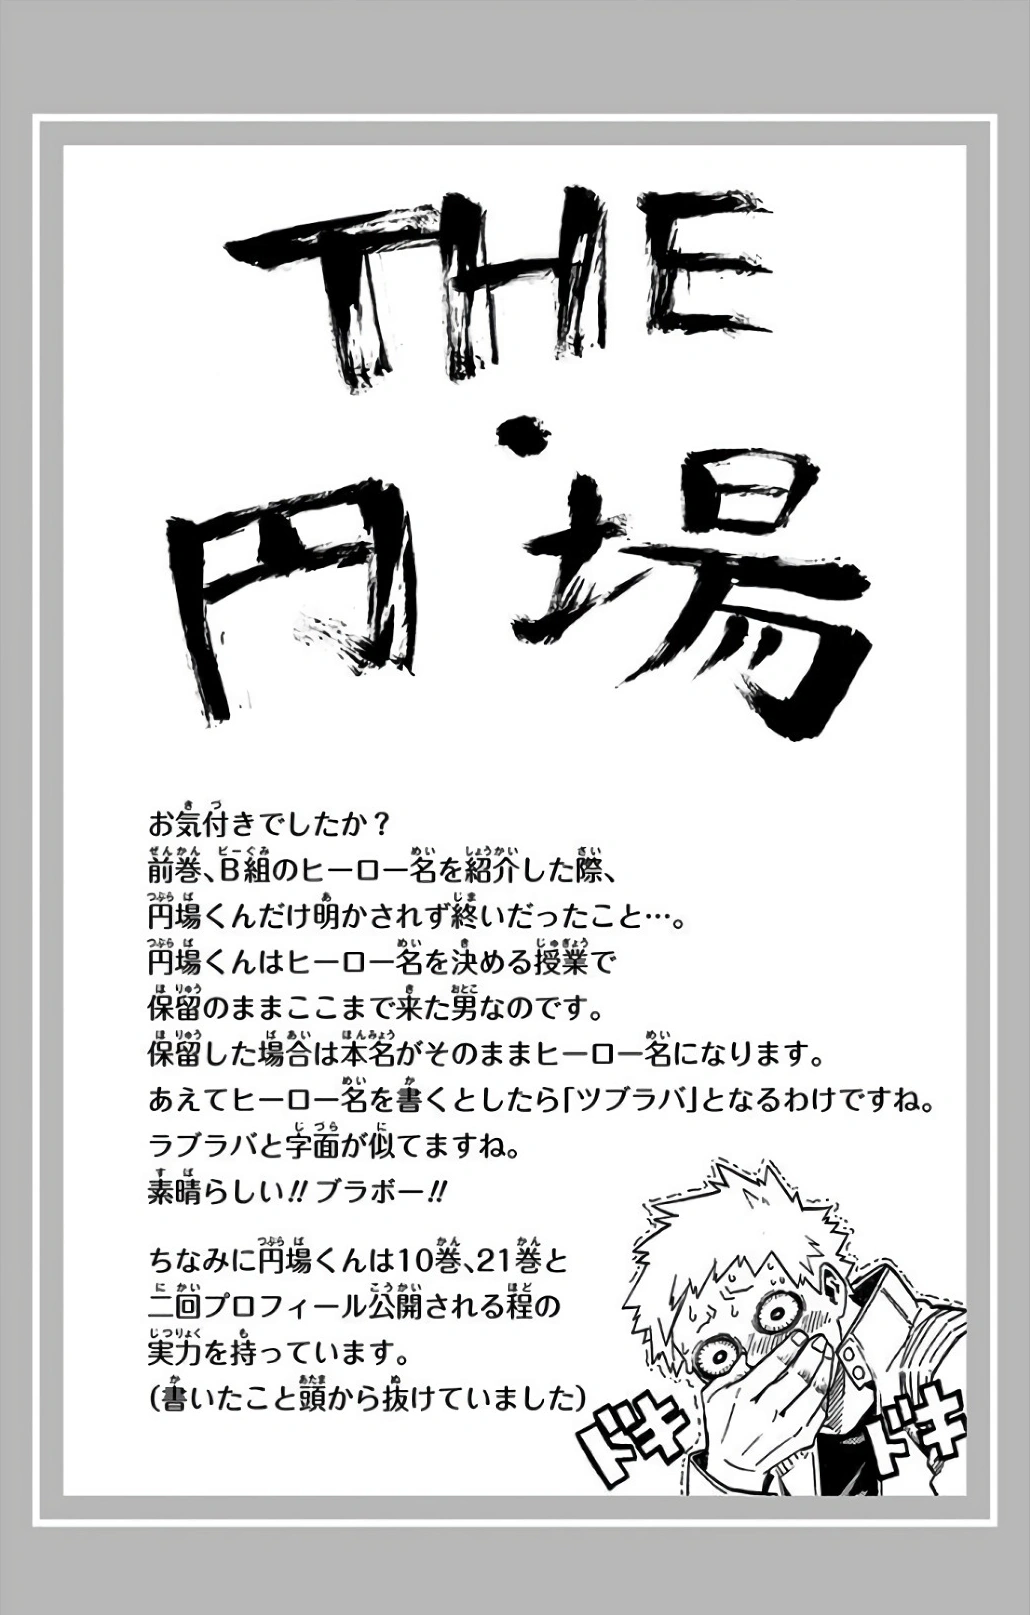 THE
・
円場
お気付きでしたか?
前巻、B組のヒーロー名を紹介した際、
円場くんだけ明かされず終いだったこと…。
円場くんはヒーロー名を決める授業で
保留のままここまで来た男なのです。
保留した場合は本名がそのままヒーロー名になります。
あえてヒーロー名を書くとしたら「ツブラバ」となるわけですね。
ラブラバと字面が似てますね。
素晴らしい!!ブラボー!!
ちなみに円場くんは10巻、21巻と
二回プロフィール公開される程の
実力を持っています。
(書いたこと頭から抜けていました)
ドキ
ドキ